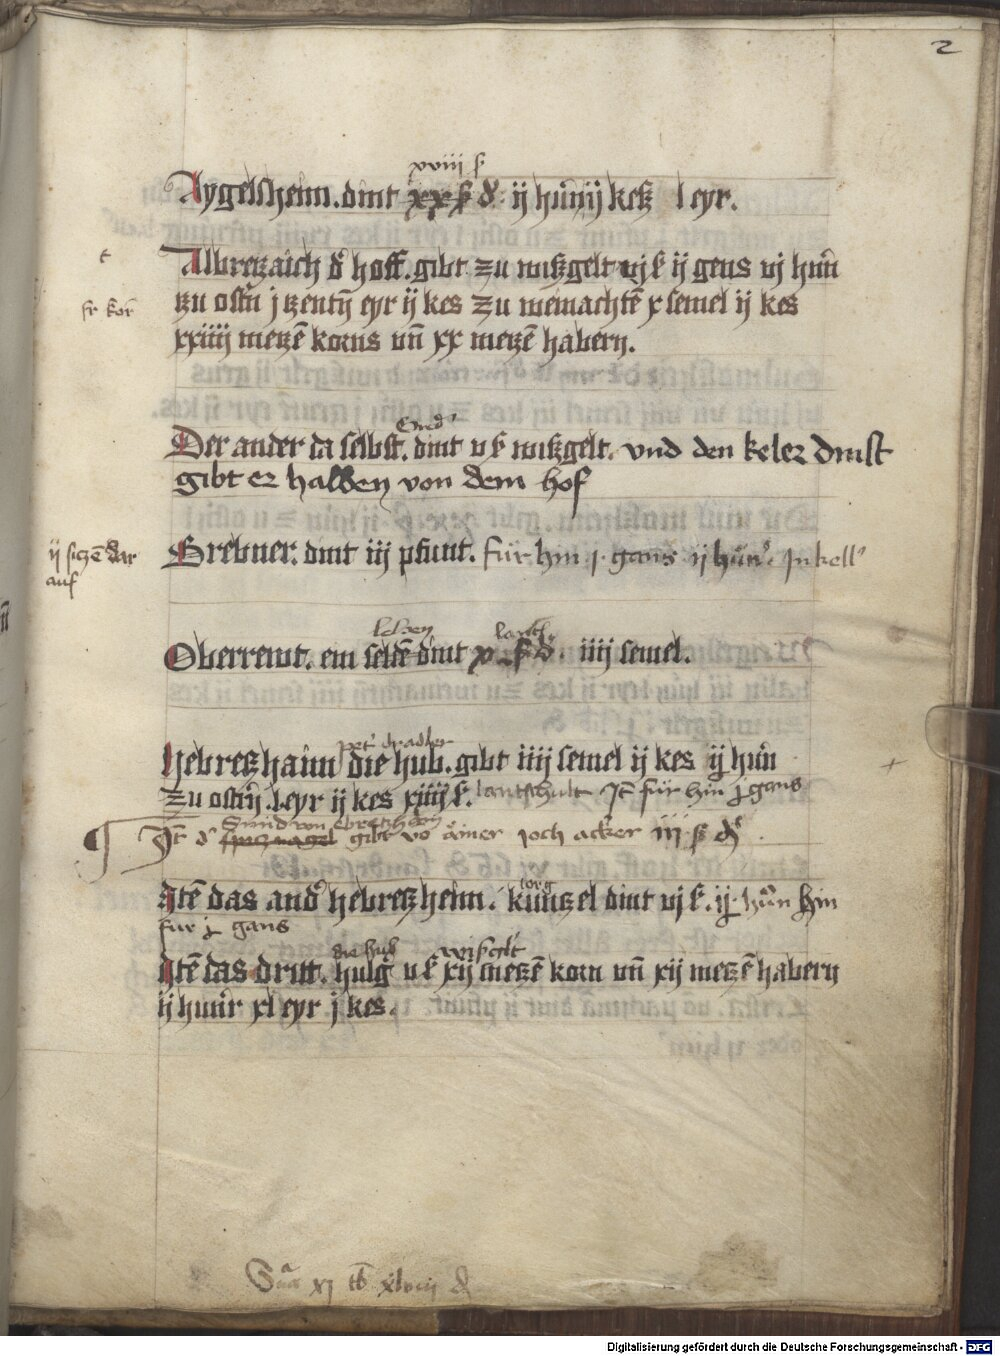 2
xviii ß
Aygelsheim. dint xx ß ₰. ij hůn ij keß l eyr.
Albretzaich d' hoff. gibt zu wißgelt vj ß ij gens vj hůn
t
zu ostn̄ j tzentn̄ eyr ij kes zu weinachtē x semel ij kes
fr korn̄
xxiiij metzē korns vn̄ xx metzē habern.
Der ander da selbst. dint v ß wißgelt. vnd den keler dinst
gibt er halben von dem hof
Grebner. dint iij pfunt. für hin j gans ij hůn' In kell'
ij sitzē dar
auf
lehen
Oberrewt. ein seldē dint x ß ₰. iiij semel.
pet' dradler
Hebretzhaim die hub. gibt iiij semel ij kes ij hůn
zu ostrn̄. l eyr ij kes xiiij ß. lantschult It̄ für hin j gans
It̄ d' gibt vō ainer Joch acker iij ß ₰.
Jtē das and' hebretzheim. kuntzel dint vj ß. ij. hůn hin
für j gans
die hub wisgelt
Jtē das dritt. hulg v ß xij metzē korn vn̄ xij metzē habern
ij hůnr xl eyr j kes.
Sūa xj tb xlviij ₰
Digitalisierung gefördert durch die Deutsche Forschungsgemeinschaft - DFG